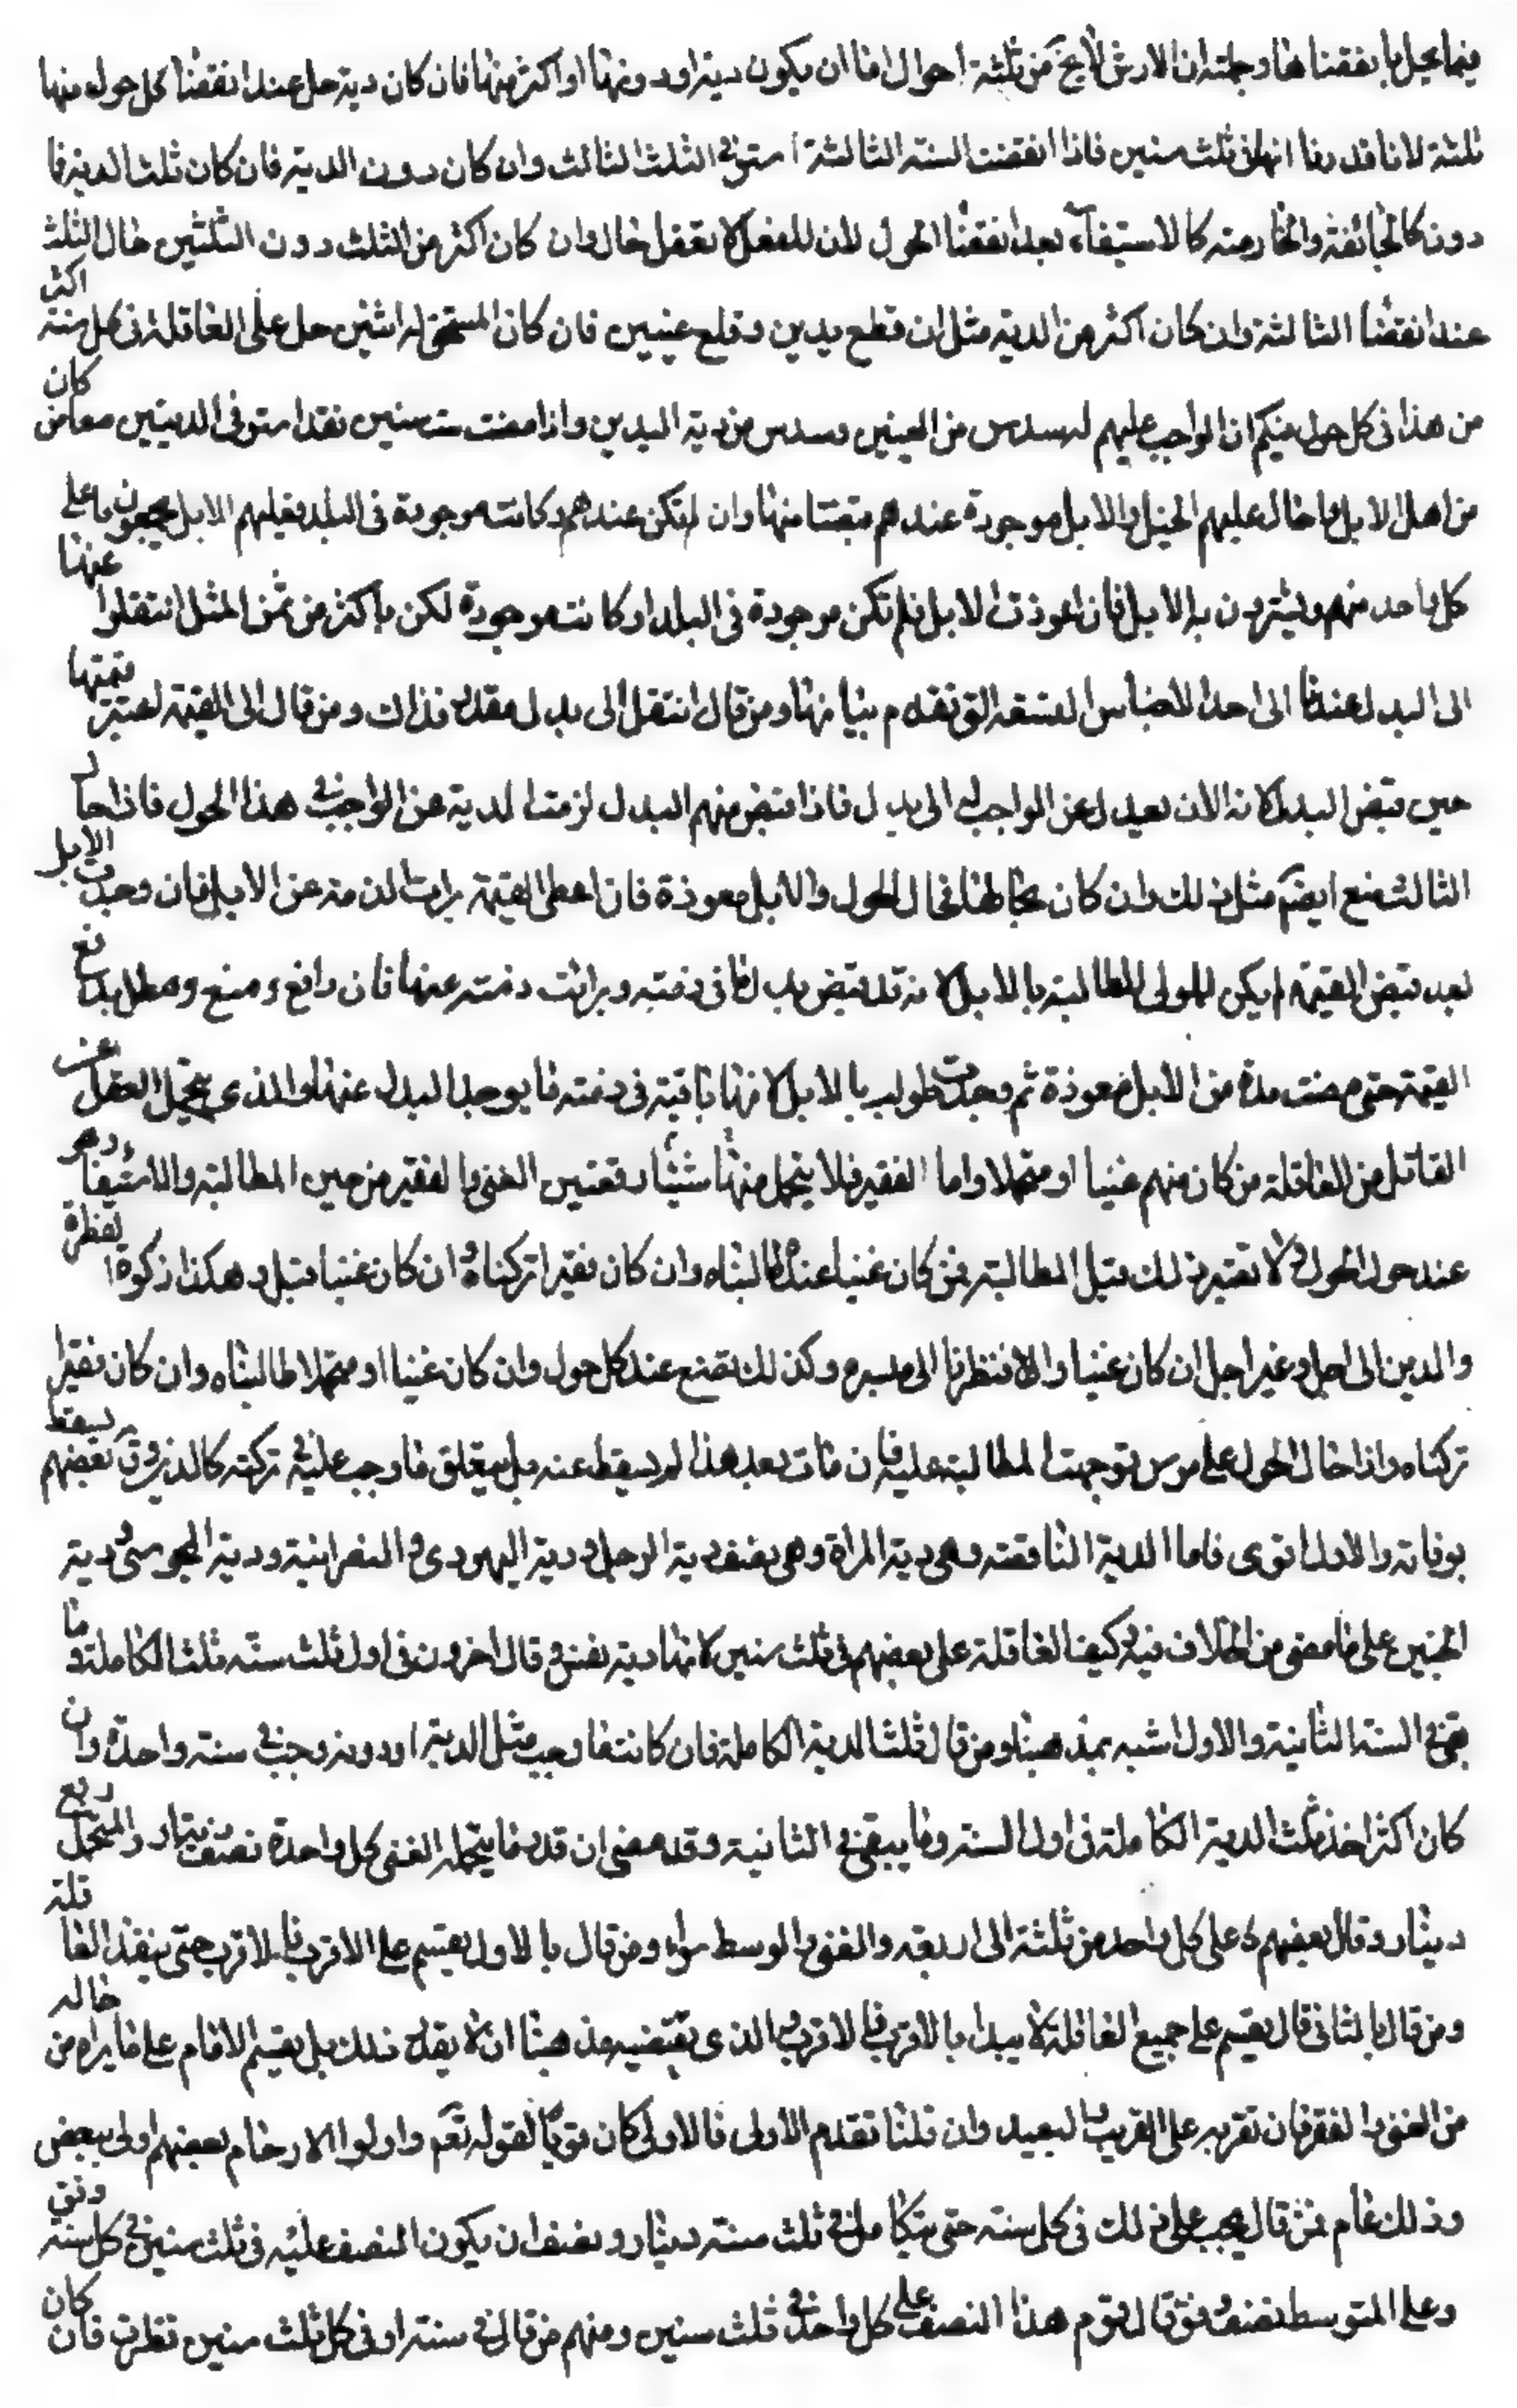 فيما يحل بانقضائها وجملته ان الارش لا يخ من ثلثة احوال اما ان يكون دية او دونها او اكثر منها فان كان دية حل عند انقضاء كل حول منها
ثلثة لانا قدرنا انها في ثلث سنين فاذا انقضت السنة الثالثة استوفى الثلث الثالث وان كان دون الدية فان كان ثلث الدية فا
دونه كالجائفة والمأمومة كان الاستيفاء بعد انقضاء الحول لان العقل لا يعقل حالا وان كان اكثر من الثلث دون الثلثين حال الثلث
عند انقضاء الثالثة وان كان اكثر من الدية مثل ان قطع يدين وقلع عينين فان كان المستحق له اثنين حل على العاقلة في كل سنة اكثر
من هذا في كل حول فيكون الواجب عليهم له سدس من العينين وسدس من دية اليدين واذا مضت ست سنين فقد استوفى الديتين معا فمن كان
من اهل الابل وما حال عليهم الحول والابل موجودة عندهم قبضنا منها وان لم تكن عندهم وكانت موجودة في البلد فعليهم الابل يجمعون ما على
كل واحد منهم ويشترون به الابل فان اعوذت الابل فلم تكن موجودة في البلد او كانت موجودة لكن باكثر من ثمن المثل انتقلوا عنها
الى البدل عندنا الى احد الاجناس التسعة التي تقدم بيانها ومن قال انتقل الى بدل مقدر فذاك ومن قال الى القيمة اعتبر قيمتها
حين قبض البدل لانه الان يعدل عن الواجب الى بدل فاذا قبض منهم البدل لزمت الدية عن الواجب في هذا الحول فاذا حال
الثالث صنع ايضا مثل ذلك وان كان بحالها فحال الحول والابل معوذة فان اعطى القيمة برات الذمة عن الابل فان وجدت الابل
بعد قبض القيمة لم يكن للولى المطالبة بالابل لانه قد قبض بدل ما في ذمته وبرائت ذمته عنها فان دافع ومنع ومطل بدفع
القيمة حتى مضت مدة من الابل معوذة ثم وجدت طولب بالابل لانها باقية في ذمته فا يوجد البدل عنها والذي يتحمل العقل عن
القاتل من العاقلة من كان منهم غنيا او متجملا واما الفقير فلا يتحمل منها شيئا ويعتبر الغنى والفقر من حين المطالبة والاستيفاء وهو
عند حول الحول ولا يعتبر ذلك قبل المطالبة فمن كان غنيا عندها طالبناه وان كان فقيرا تركناه وان كان غنيا قبل وهكذا زكوة الفطرة
والدين الى اجل وغير اجل ان كان غنيا والا انتظرنا الى ميسره وكذلك يصنع عند كل حول وان كان غنيا او متجملا طالبناه وان كان فقيرا
تركناه واذا حال الحول على موسر توجهت المطالبة عليه فان مات بعد هذا لم يسقط عنه بل يتعلق ما وجب عليه في تركته كالدين وق بعضهم يسقط
بوفاته والاول اقوى فاما الدية الناقصة وهي دية المراة وهي نصف دية الرجل ودية اليهودي والنصرانية ودية المجوسي ودية
الجنين على ما مضى من الخلاف فيه وكيف العاقلة على بعضهم في ثلث سنين لانها دية نفس وقال اخرون في اول ثلث سنة ثلث الكاملة وما
بقى في السنة الثانية والاول اشبه بمذهبنا ومن قال ثلث الدية الكاملة فان كانت ما وجب مثل الدية او دونه وجب في سنة واحدة وان
كان اكثر اخذ ثلث الدية الكاملة في اول السنة وما يبقى في الثانية وقد مضى ان قدر ما يتحمله الغنى كل واحدة نصف دينار والمتجمل ربع
دينار وقال بعضهم على كل واحد من ثلثة الى اربعة والغنى والوسط سواء ومن قال بالاول يقسم على الاقرب فالاقرب حتى ينفذ العاقلة
ومن قال بالثاني قال يقسم على جميع العاقلة لا يبدا بالاقرب فالاقرب والذي يقتضيه مذهبنا ان لا يقدر ذلك بل يقسم الامام على ما يراه من حاله
من الغنى والفقر فان تفريقه على القريب والبعيد وان قلنا تقدم الاولى فالاولى كان قويا لقوله تعم واولوا الارحام بعضهم اولى ببعض
وذلك عام فمن قال يجب على ذلك في كل سنة حتى يتكامل في ثلث سنة دينار ونصف ان يكون النصف عليه في ثلث سنين في كل سنة وفق
وعلى المتوسط نصف وفق قال قوم هذا النصف على كل واحد في ثلث سنين ومنهم من قال في سنة او في كل ثلث سنين نظرت فان كان